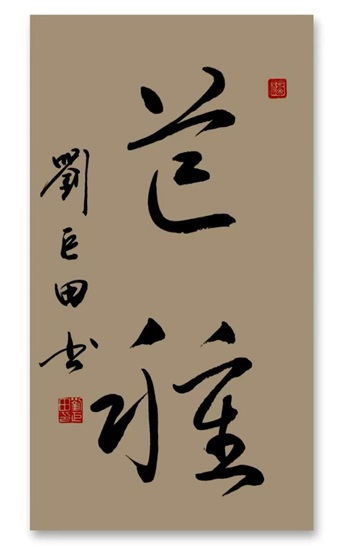 芒種
劉巨田书